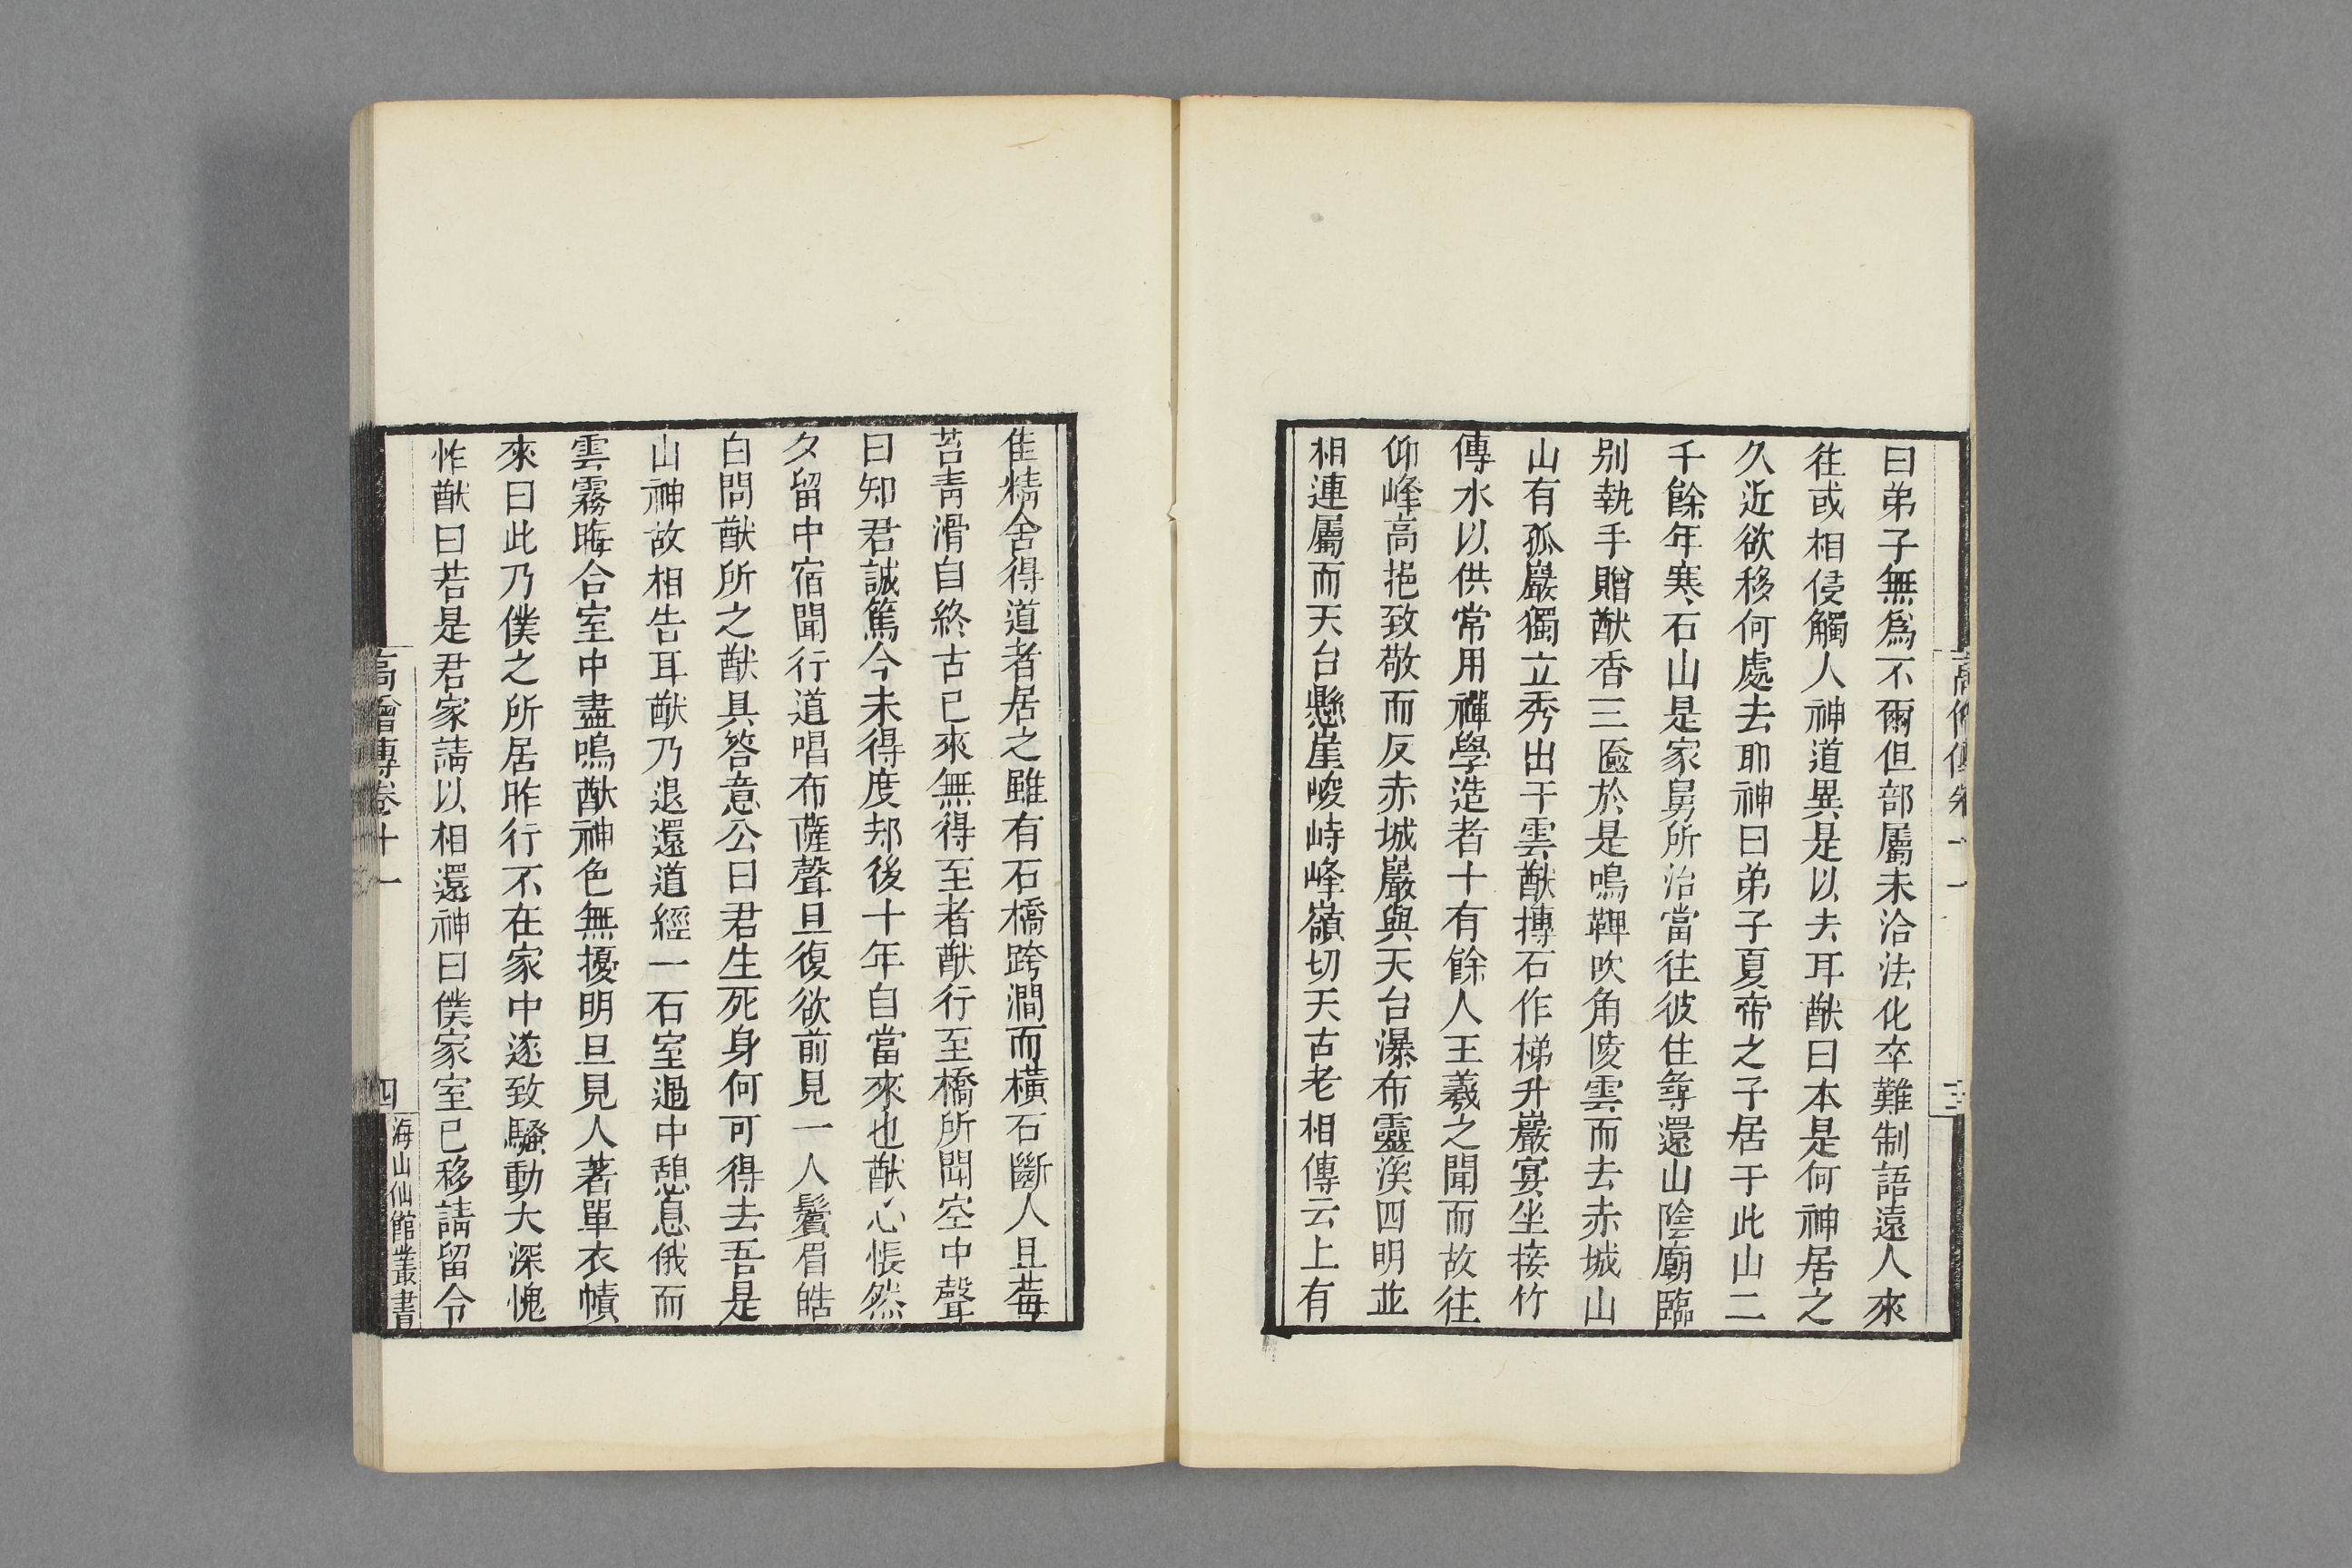 曰弟子無爲不爾但部屬未洽法化卒難制語遠人來
往或相侵觸人神道異是以去耳猷曰本是何神居之
久近欲移何處去耶神曰弟子夏帝之子居于此山二
千餘年寒石山是家舅所治當往彼住尋還山陰廟臨
別執手贈猷香三匳於是鳴鞞吹角陵雲而去赤城山
山有孤巖獨立秀出干雲猷摶石作梯升巖宴坐接竹
傳水以供常用禪學造者十有餘人王羲之聞而故往
仰峰高挹致敬而反赤城巖與天台瀑布靈溪四明並
相連屬而天台懸崖峻峙峰嶺切天古老相傳云上有
佳精舍得道者居之雖有石橋跨澗而橫石斷人且莓
苔青滑自終古已來無得至者猷行至橋所聞空中聲
曰知君誠篤今未得度却後十年自當來也猷心悵然
夕留中宿聞行道唱布薩聲旦復欲前見一人鬢眉皓
白問猷所之猷具答意公曰君生死身何可得去吾是
山神故相告耳猷乃退還道經一石室過中憩息俄而
雲霧晦合室中盡鳴猷神色無擾明旦見人著單衣幘
來曰此乃僕之所居昨行不在家中遂致騷動大深愧
怍猷曰若是君家請以相還神曰僕家室已移請留令
高僧傳卷十一
四
海山仙館叢書